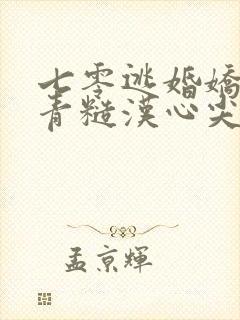 七零逃婚嬌
青糙漢心尖
孟京輝